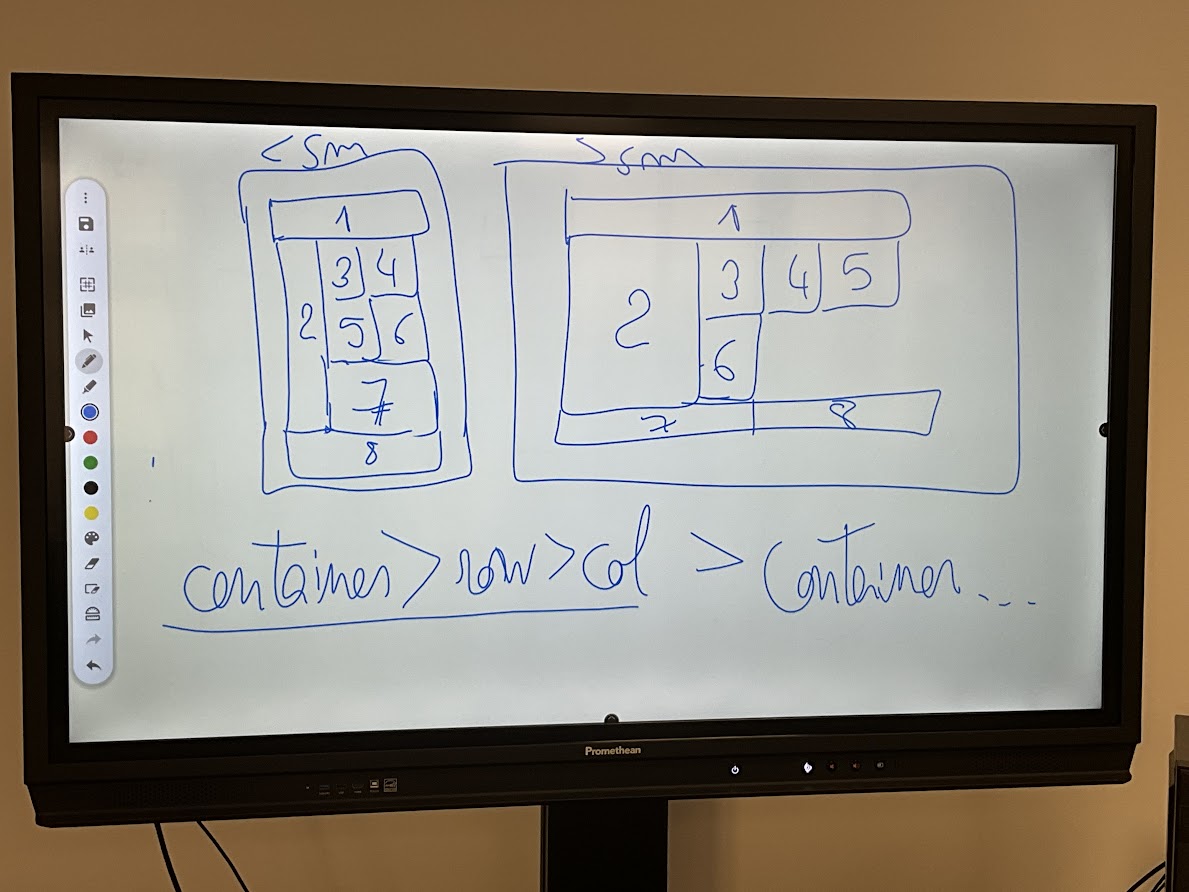 < sm
1
3 4
2 5 6
7
8
> sm
1
2 3 4 5
6
7 8
container > row > col > Container...
Promethean